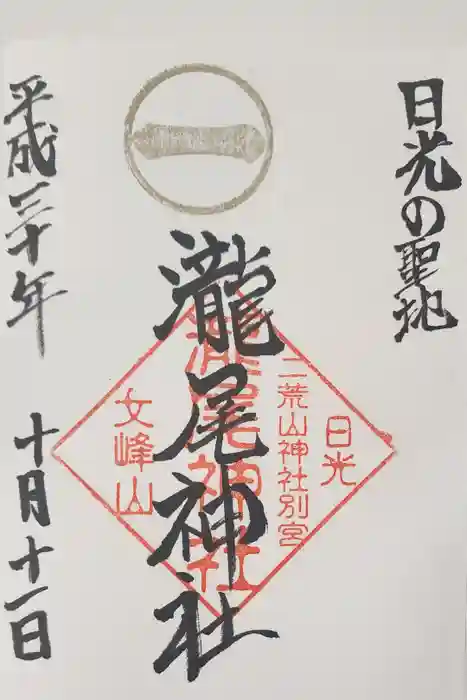 日光の聖地
一
瀧尾神社
日光
二荒山神社別宮
瀧尾神社
女峰山
平成三十年
十月十一日